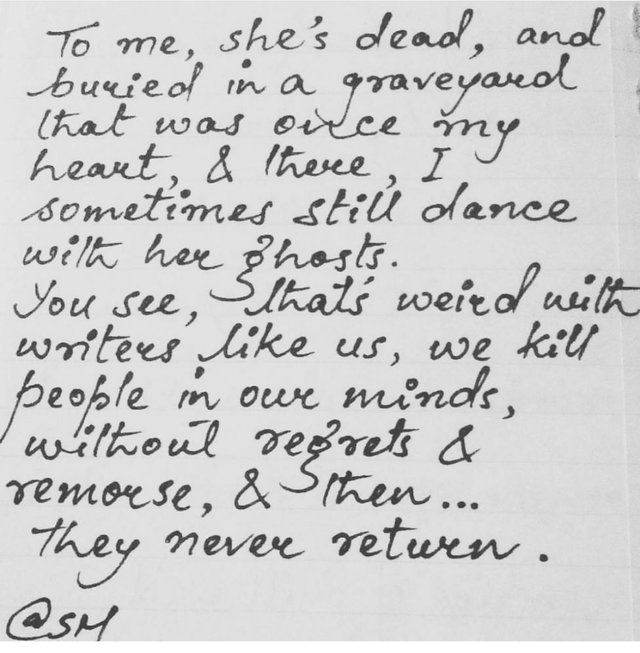 To me, she's dead, and
buried in a graveyard
that was once my
heart, & there, I
sometimes still dance
with her ghosts.
You see, that's weird with
writers like us, we kill
people in our minds,
without regrets &
remorse, & then...
they never return.
@SM